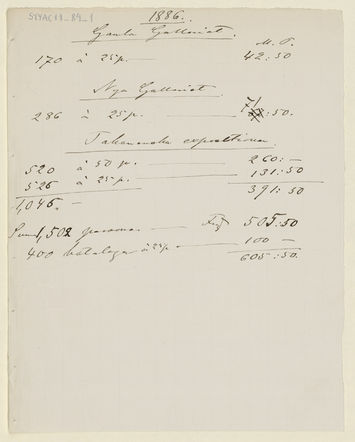 1886.
Gamla Galleriet.
M. P.
170 à 25 p. — 42:50
Nya Galleriet.
286 à 25 p. — 71:50.
expositionen
520 à 50 p. — 260:—
526 à 25 p. — 131:50
391:50
1,046.—
1,502 personer — 505:50
400 kataloger à 25 p — 100 —
605:50.